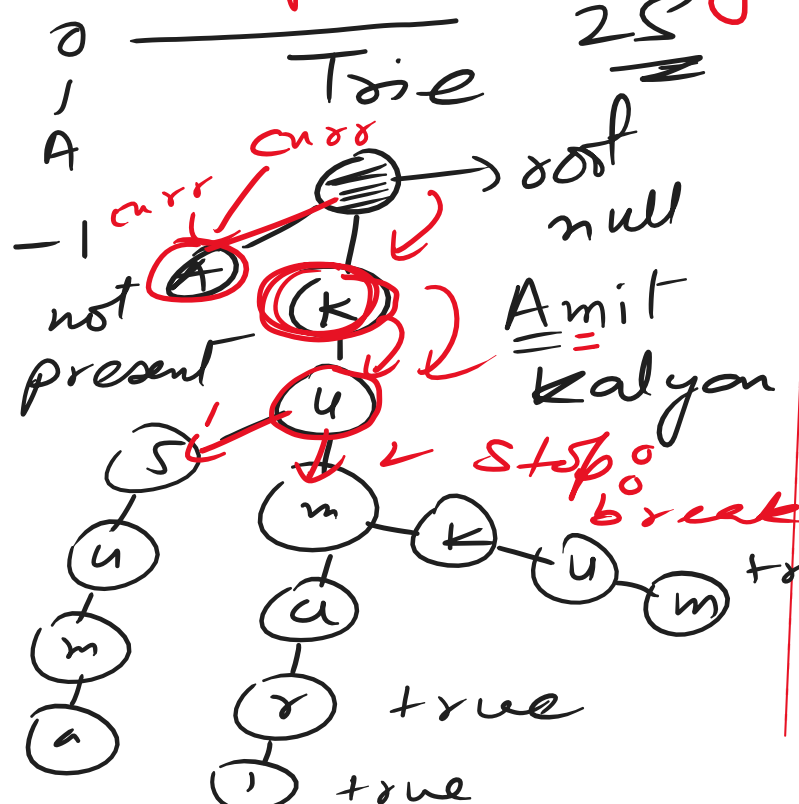 0
25
Trie
A
curr
root
null
curr
-1
A
not
present
K
Amit
Kalyan
u
S
stop:
break
m
K
u
u
m
a
m
r
true
a
true